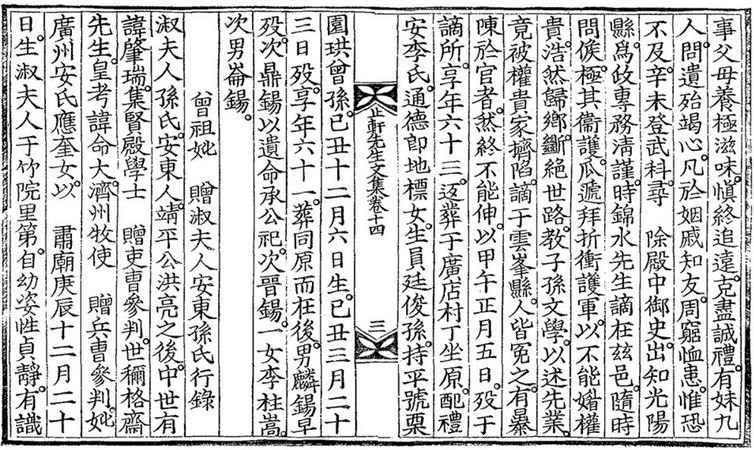 事父母養極滋味愼終追遠克盡誠禮有妹九
人問遺殆竭心凡於姻戚知友周窮恤患惟恐
不及辛未登武科尋 除殿中御史出知光陽
縣爲政專務淸謹時錦水先生謫在玆邑隨時
問候極其衞護瓜遞拜折衝護軍以不能媚權
貴浩然歸鄕斷絶世路敎子孫文學以述先業
竟被權貴家擠陷謫于雲峯縣人皆寃之有暴
陳於官者然終不能伸以甲午正月五日歿于
謫所享年六十三返葬于廣店村丁坐原配禮
安李氏通德郞地標女生員廷俊孫持平號栗
止軒先生文集卷十四
三
園珙曾孫己丑十二月六日生己丑三月二十
三日歿享年六十一葬同原而在後男麟錫早
歿次鼎錫以遺命承公祀次晉錫一女李柱嵩
次男崙錫
曾祖妣 贈淑夫人安東孫氏行錄
淑夫人孫氏安東人靖平公洪亮之後中世有
諱肇瑞集賢殿學士 贈吏曹參判世稱格齋
先生皇考諱命大濟州牧使 贈兵曹參判妣
廣州安氏應奎女以 肅廟庚辰十二月二十
日生淑夫人于竹院里第自幼姿性貞靜有識